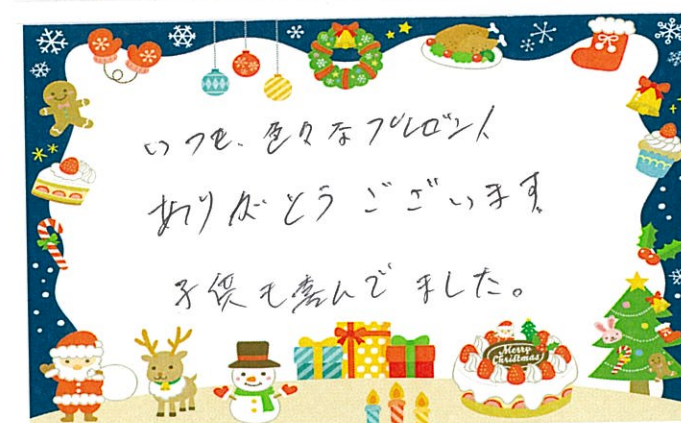 いつも、色々なプレゼント
ありがとうございます。
子供も喜んでました。
Merry
Christmas